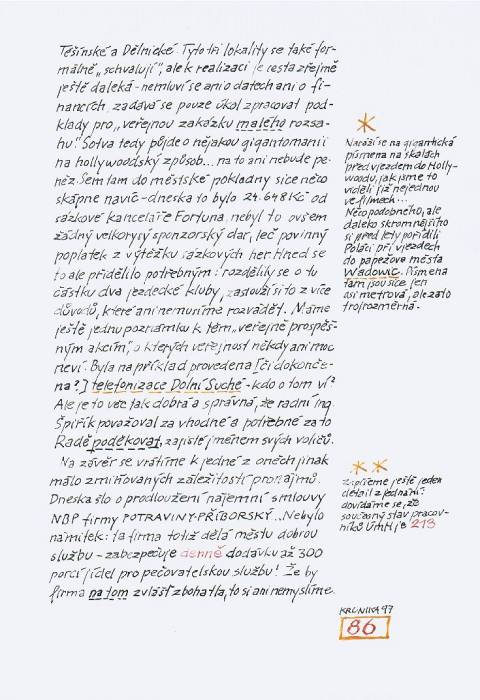 Těšínské a Dělnické. Tyto tři lokality se také for-
málně „schvalují", ale k realizaci je cesta zřejmě
ještě daleká - nemluví se ani o datech ani o fi-
nancích, zadává se pouze úkol zpracovat pod-
klady pro „veřejnou zakázku malého rozsa-
hu." Sotva tedy půjde o nějakou gigantomanii
na hollywoodský způsob... na to ani nebude pe-
něz. Sem tam do městské pokladny sice něco
skápne navíc - dneska to bylo 24.648 Kč od
sázkové kanceláře Fortuna, nebyl to ovšem
žádný velkorysý sponzorský dar, leč povinný
poplatek z výtěžku sázkových her. Hned se
to ale přidělilo potřebným: rozdělily se o tu
částku dva jezdecké kluby, zaslouží si to z více
důvodů, které ani nemusíme rozvádět. Máme
ještě jednu poznámku k těm „veřejně prospěš-
ným akcím", o kterých veřejnost někdy ani moc
neví. Byla například provedena [či dokonče-
na?] telefonizace Dolní Suché - kdo o tom ví?
Ale je to věc tak dobrá a správná, že radní ing.
Špiřík považoval za vhodné a potřebné za to
Radě poděkovat, zajisté jménem svých voličů.
Na závěr se vrátíme k jedné z oněch jinak
málo zmiňovaných záležitostí pronájmů.
Dneska šlo o prodloužení nájemní smlouvy
NBP firmy POTRAVINY-PŘÍBORSKÝ... Nebylo
námitek: ta firma totiž dělá městu dobrou
službu - zabezpečuje denně dodávku až 300
porcí jídel pro pečovatelskou službu! Že by
firma na tom zvlášť zbohatla, to si ani nemyslíme.
*
Naráží se na gigantická
písmena na skalách
před vjezdem do Holly-
woodu, jak jsme to
viděli již nejednou
ve filmech...
Něco podobného, ale
daleko skromnějšího
si před lety pořídili
Poláci při vjezdech
do papežova města
Wadowic. Písmena
tam jsou sice jen
asi metrová, ale zato
trojrozměrná.
**
Zapíšeme ještě jeden
detail z jednání:
dovídáme se, že
současný stav pracov-
níků ÚMH je 213
KRONIKA 97
86